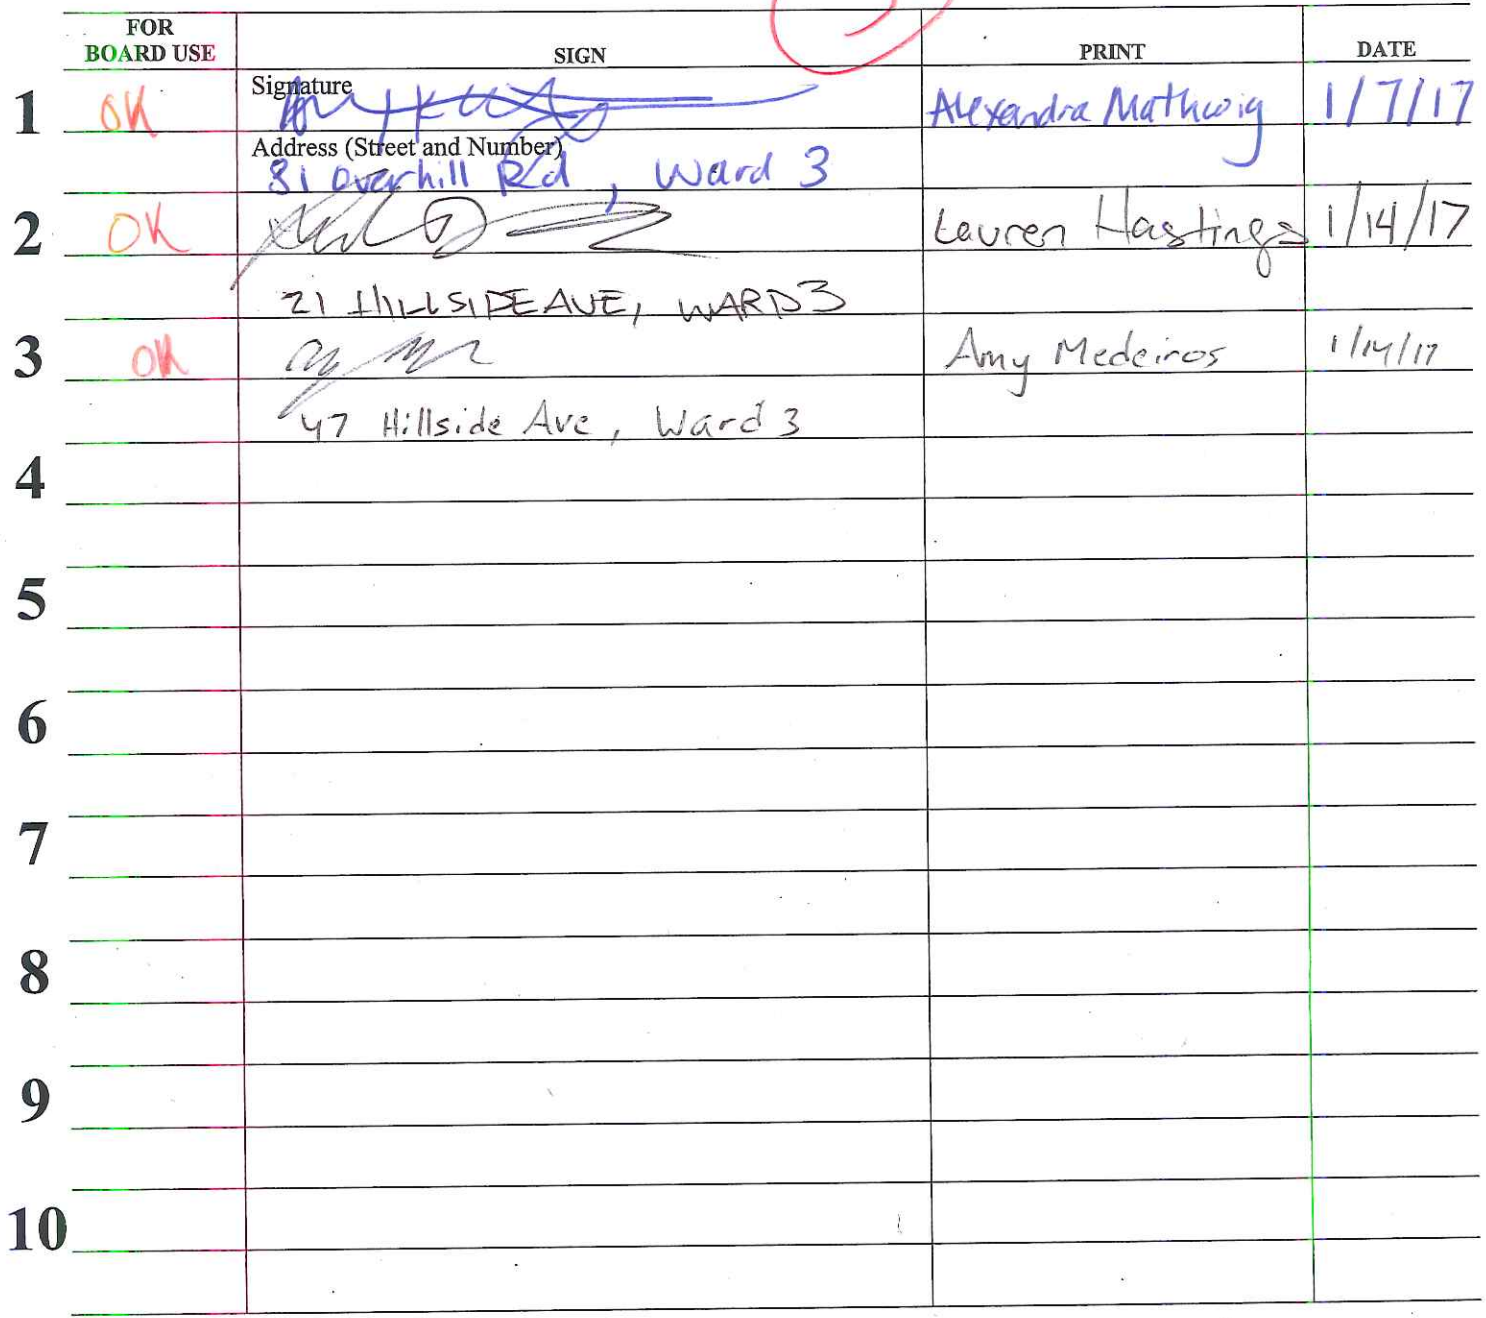 FOR BOARD USE SIGN PRINT DATE
Signature
1 OK Alexandra Mathwig 1/7/17
Address (Street and Number)
81 Overhill Rd, Ward 3
2 OK Lauren Hastings 1/14/17
21 HILLSIDE AVE, WARD 3
3 OK Amy Medeiros 1/14/17
47 Hillside Ave, Ward 3
4
5
6
7
8
9
10